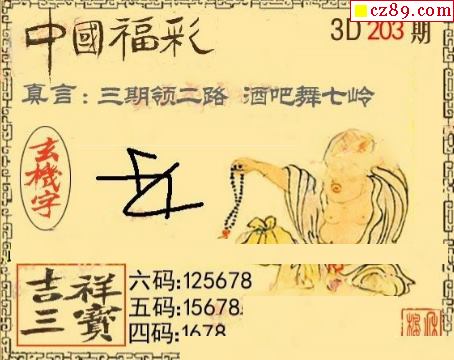 cz89.com
中國福彩
3D 203 期
真言：三期领二路 酒吧舞七岭
玄機字
吉祥三寶
六码:125678
五码:15678
四码:1678